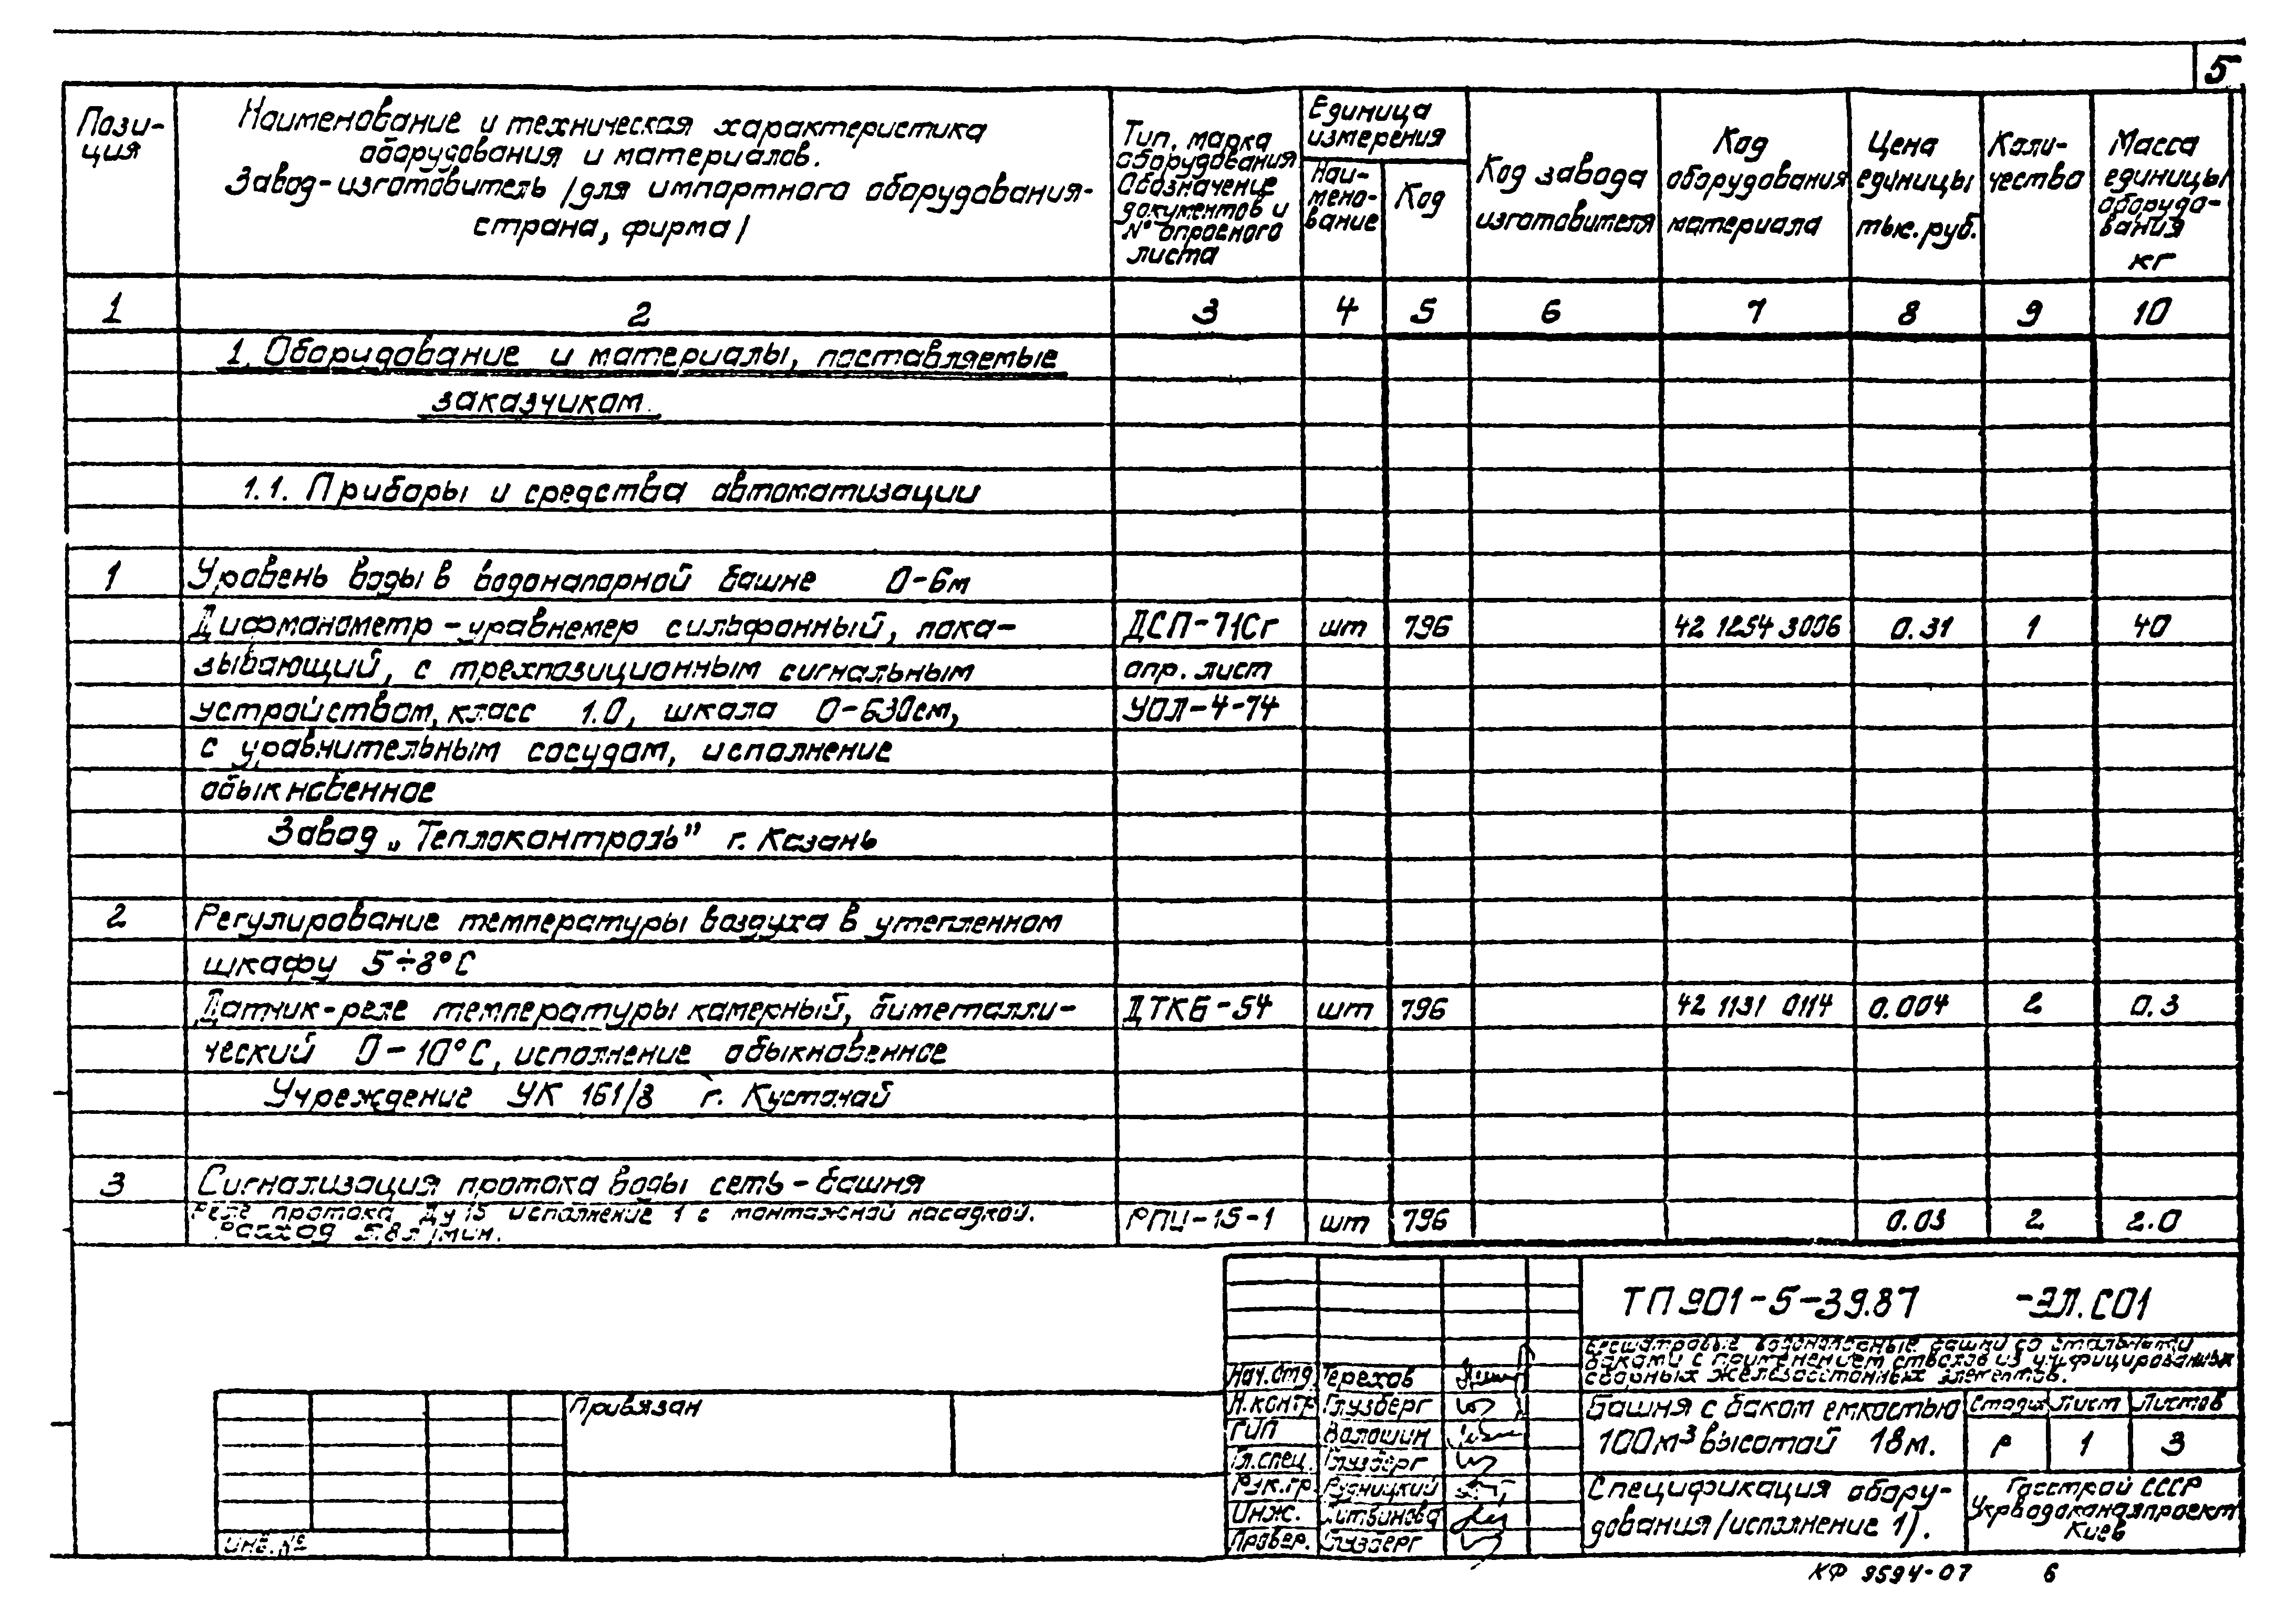 5
Пози-
ция
Наименование и техническая характеристика
оборудования и материалов.
Завод-изготовитель /для импортного оборудования-
страна, фирма/
Тип, марка
оборудования
Обозначение
документов и
№ опросного
листа
Единица
измерения
Наи-
мено-
вание
Код
Код завода
изготовителя
Код
оборудования
материала
Цена
единицы
тыс. руб.
Коли-
чество
Масса
единицы
оборудо-
вания
кг
1 2 3 4 5 6 7 8 9 10
1. Оборудование и материалы, поставляемые
заказчиком.
1.1. Приборы и средства автоматизации
1 Уровень воды в водонапорной башне 0-6м
Дифманометр-уравнемер сильфонный, пока- ДСП-71Сг шт 796 42 1254 3006 0.31 1 40
зывающий, с трехпозиционным сигнальным опр. лист
устройством, класс 1.0, шкала 0-630см, УОЛ-4-74
с уравнительным сосудом, исполнение
обыкновенное
Завод „Теплоконтроль" г. Казань
2 Регулирование температуры воздуха в утепленном
шкафу 5÷8°С
Датчик-реле температуры камерный, биметалли- ДТКБ-54 шт 796 42 1131 0114 0.004 2 0.3
ческий 0-10°С, исполнение обыкновенное
Учреждение УК 161/8 г. Кустанай
3 Сигнализация протока воды сеть-башня
Реле протока Ду15 исполнение 1 с монтажной насадкой. РПИ-15-1 шт 796 0.03 2 2.0
Расход 5.8л/мин.
ТП 901-5-39.87 -ЭЛ.СО1
Бесшатровые водонапорные башни со стальными
баками с применением стволов из унифицированных
сборных железобетонных элементов.
Нач.отд. Терехов
Н.контр. Глузберг
ГИП Волошин
Гл.спец. Глузберг
Рук.гр. Рудницкий
Инж. Литвинова
Провер. Глузберг
Башня с баком емкостью
100м³ высотой 18м.
Стадия Лист Листов
Р 1 3
Спецификация обору-
дования/исполнение 1/.
Госстрой СССР
Укрводоканалпроект
Киев
Привязан
Инв.№
КФ 9594-07 6